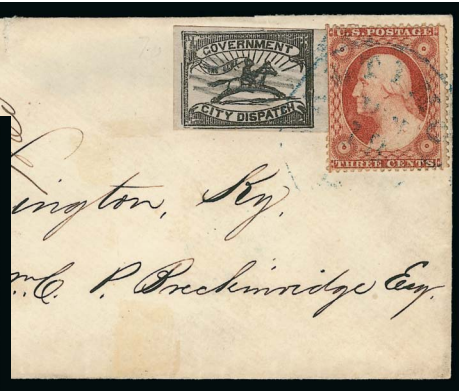 GOVERNMENT
CITY DISPATCH
U.S. POSTAGE
THREE CENTS
ington, Ky.
m. C. P. Breckinridge Esq.